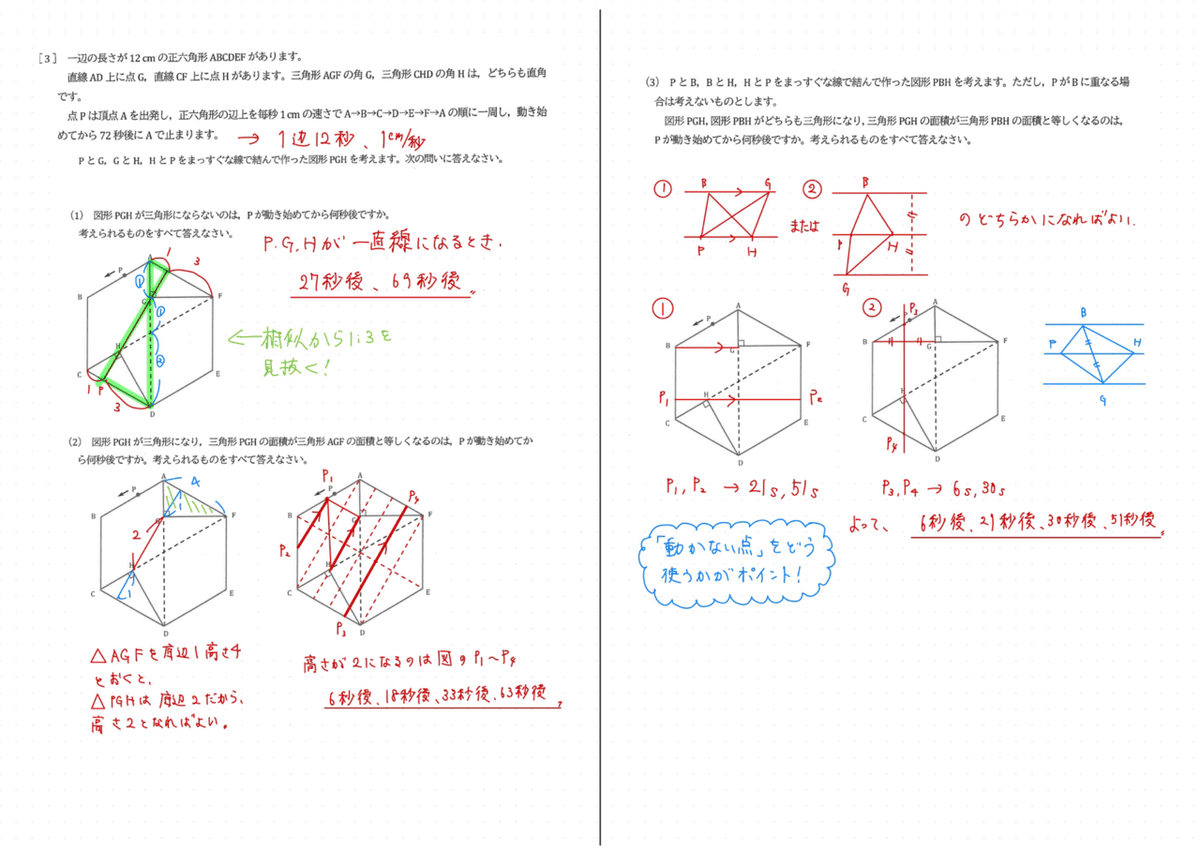 [3] 一辺の長さが 12 cm の正六角形 ABCDEF があります。
直線 AD 上に点 G，直線 CF 上に点 H があります。三角形 AGF の角 G，三角形 CHD の角 H は，どちらも直角
です。
点 P は頂点 A を出発し，正六角形の辺上を毎秒 1 cm の速さで A→B→C→D→E→F→A の順に一周し，動き始
めてから 72 秒後に A で止まります。
→ 1辺12秒、1cm/秒
P と G，G と H，H と P をまっすぐな線で結んで作った図形 PGH を考えます。次の問いに答えなさい。
(1) 図形 PGH が三角形にならないのは，P が動き始めてから何秒後ですか。
考えられるものをすべて答えなさい。
P.G,Hが一直線になるとき.
27秒後、69秒後〃
A
P
1
3
B
①
G
F
①
H
②
C
1
P
3
E
D
←相似から1:3を
見抜く!
(2) 図形 PGH が三角形になり，三角形 PGH の面積が三角形 AGF の面積と等しくなるのは，P が動き始めてか
ら何秒後ですか。考えられるものをすべて答えなさい。
A
4
P
B
1
F
2
H
C
1
E
D
P1
A
P
P4
B
G
F
P2
H
C
E
P3
D
△AGFを底辺1高さ4
とおくと、
△PGHは底辺2だから、
高さ2となればよい。
高さが2になるのは図のP1~P4
6秒後、18秒後、33秒後、63秒後〃
(3) P と B，B と H，H と P をまっすぐな線で結んで作った図形 PBH を考えます。ただし，P が B に重なる場
合は考えないものとします。
図形 PGH, 図形 PBH がどちらも三角形になり，三角形 PGH の面積が三角形 PBH の面積と等しくなるのは，
P が動き始めてから何秒後ですか。考えられるものをすべて答えなさい。
①
B
G
P
H
または
②
B
P
H
G
のどちらかになればよい.
①
A
P
B
G
F
P1
H
P2
C
E
D
②
P3
A
P
B
G
F
H
C
P4
E
D
B
P
H
G
P1,P2 → 21s,51s
P3,P4 → 6s,30s
よって、 6秒後、21秒後、30秒後、51秒後〃
「動かない点」をどう
使うかがポイント!